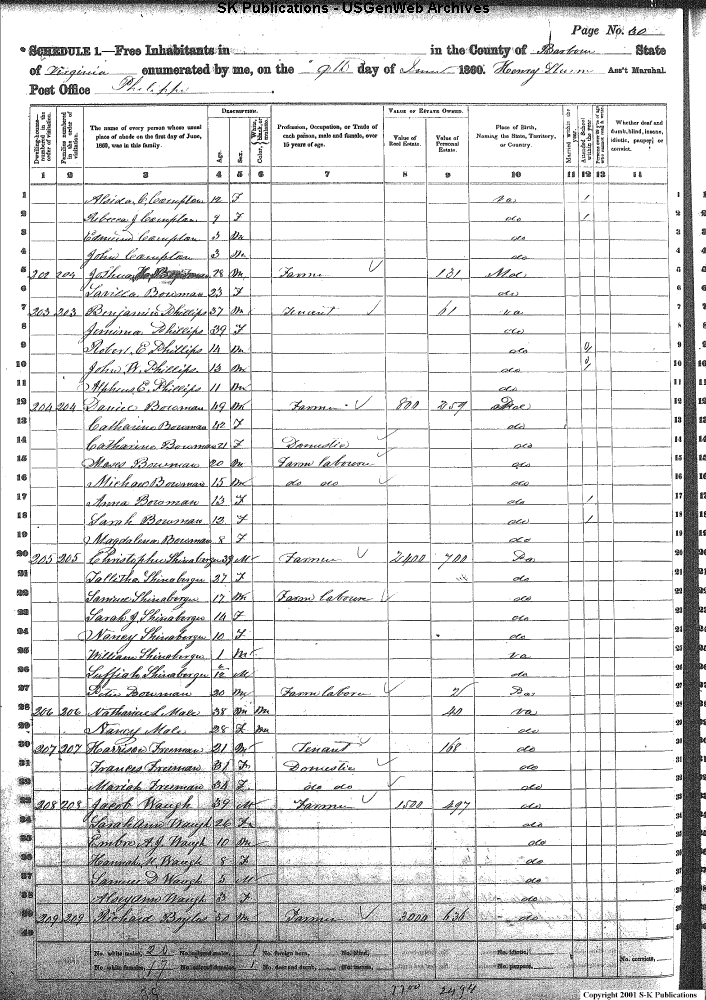 SK Publications - USGenWeb Archives
Page No. 60
SCHEDULE 1.—Free Inhabitants in in the County of Barbour State
of Virginia enumerated by me, on the 9th day of June 1860. Ass't Marshal.
Post Office Philippi
DESCRIPTION. VALUE OF ESTATE OWNED.
Dwelling-houses—numbered in the order of visitation. Families numbered in the order of visitation. The name of every person whose usual place of abode on the first day of June, 1860, was in this family. Age. Sex. Color, White, black, or mulatto. Profession, Occupation, or Trade of each person, male and female, over 15 years of age. Value of Real Estate. Value of Personal Estate. Place of Birth, Naming the State, Territory, or Country. Married within the year. Attended School within the year. Whether deaf and dumb, blind, insane, idiotic, pauper, or convict.
1 2 3 4 5 6 7 8 9 10 11 12 13 14
1 12 F Va /
2 Rebecca J 7 F do /
3 Edmund 3 m do
4 John 3 m do
5 202 204 Joshua Bowman 28 m Farmer 131 Md
6 Savilla Bowman 23 F do
7 203 203 Benjamin Phillips 37 m Tenant 61 Va
8 Jemima Phillips 39 F do
9 Robert E Phillips 14 m do
10 John W. Phillips 13 m do
11 Alpheus E. Phillips 11 m do
12 204 204 Daniel Bowman 49 m Farmer 800 259
13 Catharine Bowman 42 F do
14 Catharine Bowman 21 F Domestic do
15 Moses Bowman 20 m Farm laborer do
16 Michael Bowman 15 m do do do
17 Anna Bowman 13 F do /
18 Sarah Bowman 12 F do /
19 Magdalena Bowman 8 F do
20 205 205 Christopher Shinaberger 39 M Farmer 2400 700 Pa
21 Tallitha Shinaberger 27 F do
22 Samuel Shinaberger 17 m Farm laborer do
23 Sarah J. Shinaberger 14 F do
24 Nancy Shinaberger 10 F do
25 William Shinaberger 1 m Va
26 Shinaberger 12 M do
27 Peter Bowman 20 m Farm labore Pa
28 206 206 Male 38 m m 40 Va
29 Nancy Male 28 F m do
30 207 207 Harrison Freeman 21 m Tenant 168 do
31 Frances Freeman 31 F Domestic do
32 Mariah Freeman 34 F do do do
33 208 208 Jacob Waugh 39 M Farmer 1500 497 do
34 Sarah Ann Waugh 26 F do
35 Waugh 10 m do
36 Hannah M. Waugh 8 F do
37 Samuel D Waugh 5 M do
38 Waugh 3 F do
39 209 209 Richard Boyles 50 m Farmer 3000 636 do
40
No. white males, 20 No. colored males, 1 No. foreign born, No. blind, No. idiotic, No. convicts,
No. white females, 17 No. colored females, 1 No. deaf and dumb, No. insane, No. paupers,
39 7700 2494
Copyright 2001 S-K Publications